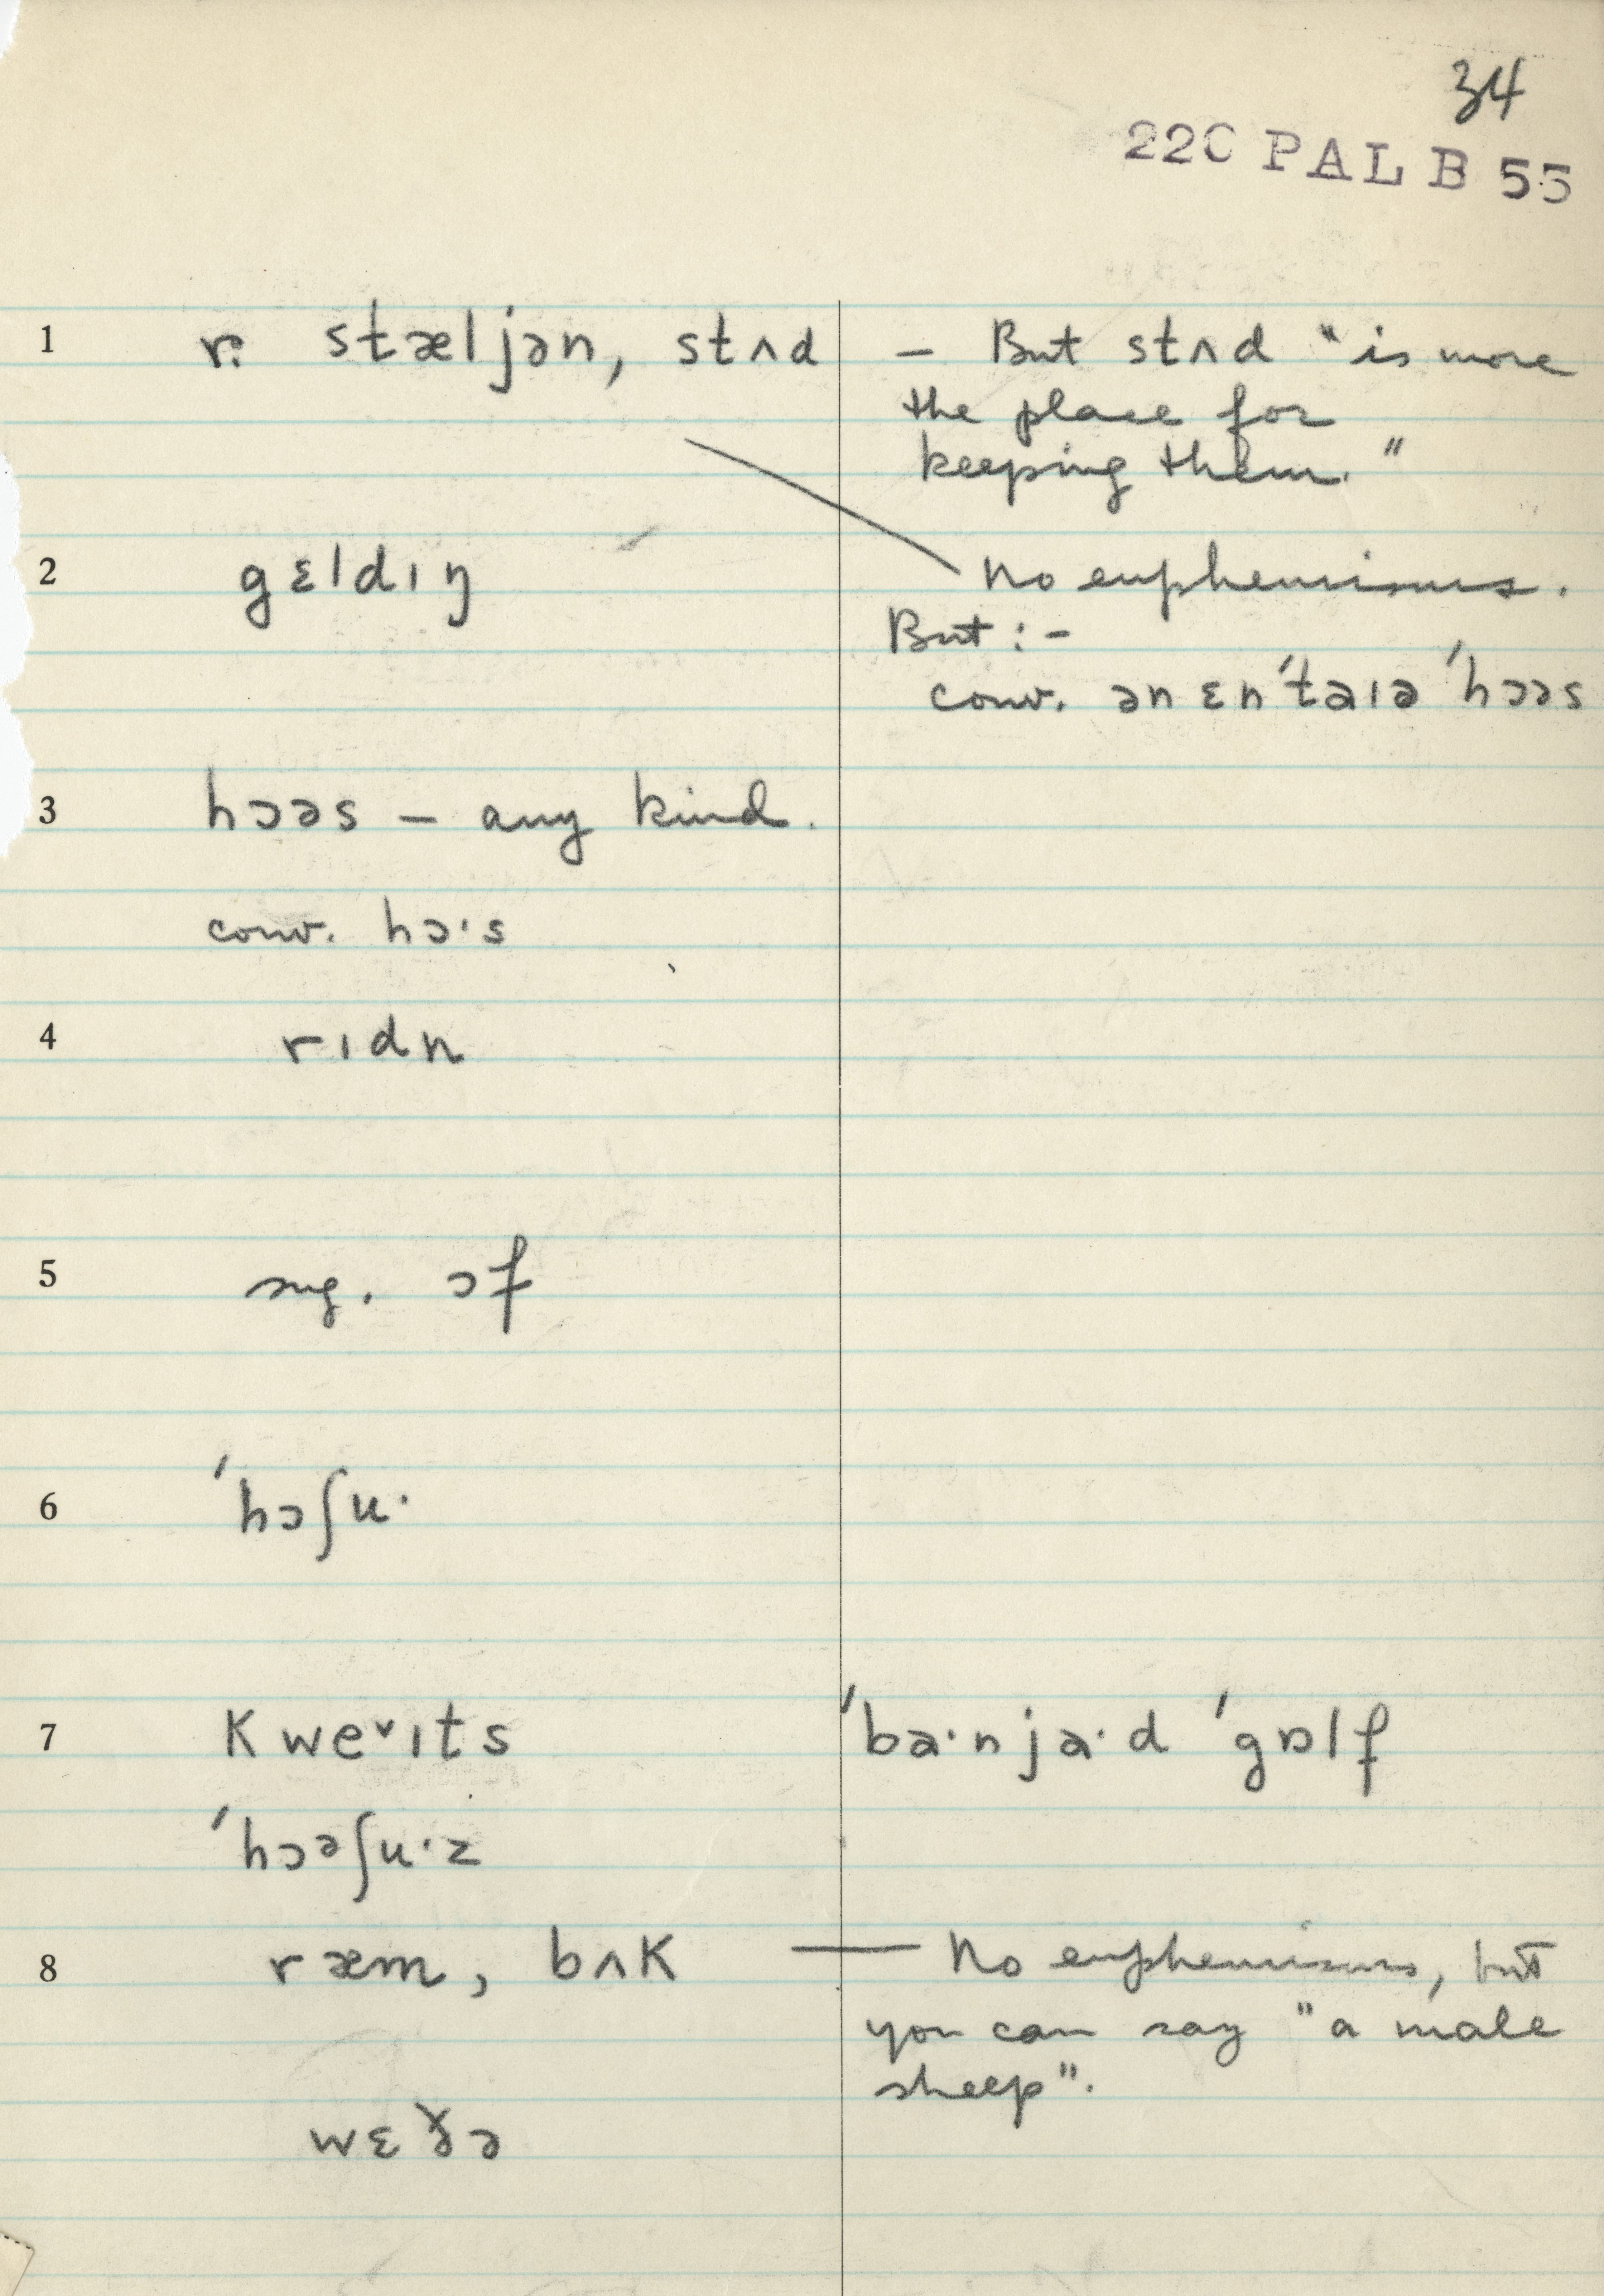 34
22C PAL B 55
1 r. stæljən, stʌd — But stʌd "is more
the place for
keeping them."
2 gɛldıŋ No euphemisms.
But :-
conv. ən ɛn'taıə 'hɔəs
3 hɔəs — any kind.
conv. hɔ·s
4 rıdn
5 sug. ɔf
6 'hɔʃu·
7 kweˇıts 'ba·nja·d 'gɒlf
'hɔəʃu·z
8 ræm, bʌk — No euphemisms, but
you can say "a male
sheep".
wɛðə